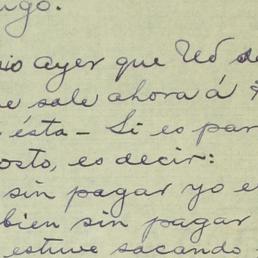 ugo.
io ayer que Ud de
e sale ahora á
ésta - Si es par
osto, es decir:
sin pagar yo e
bien sin pagar
estuve sacando